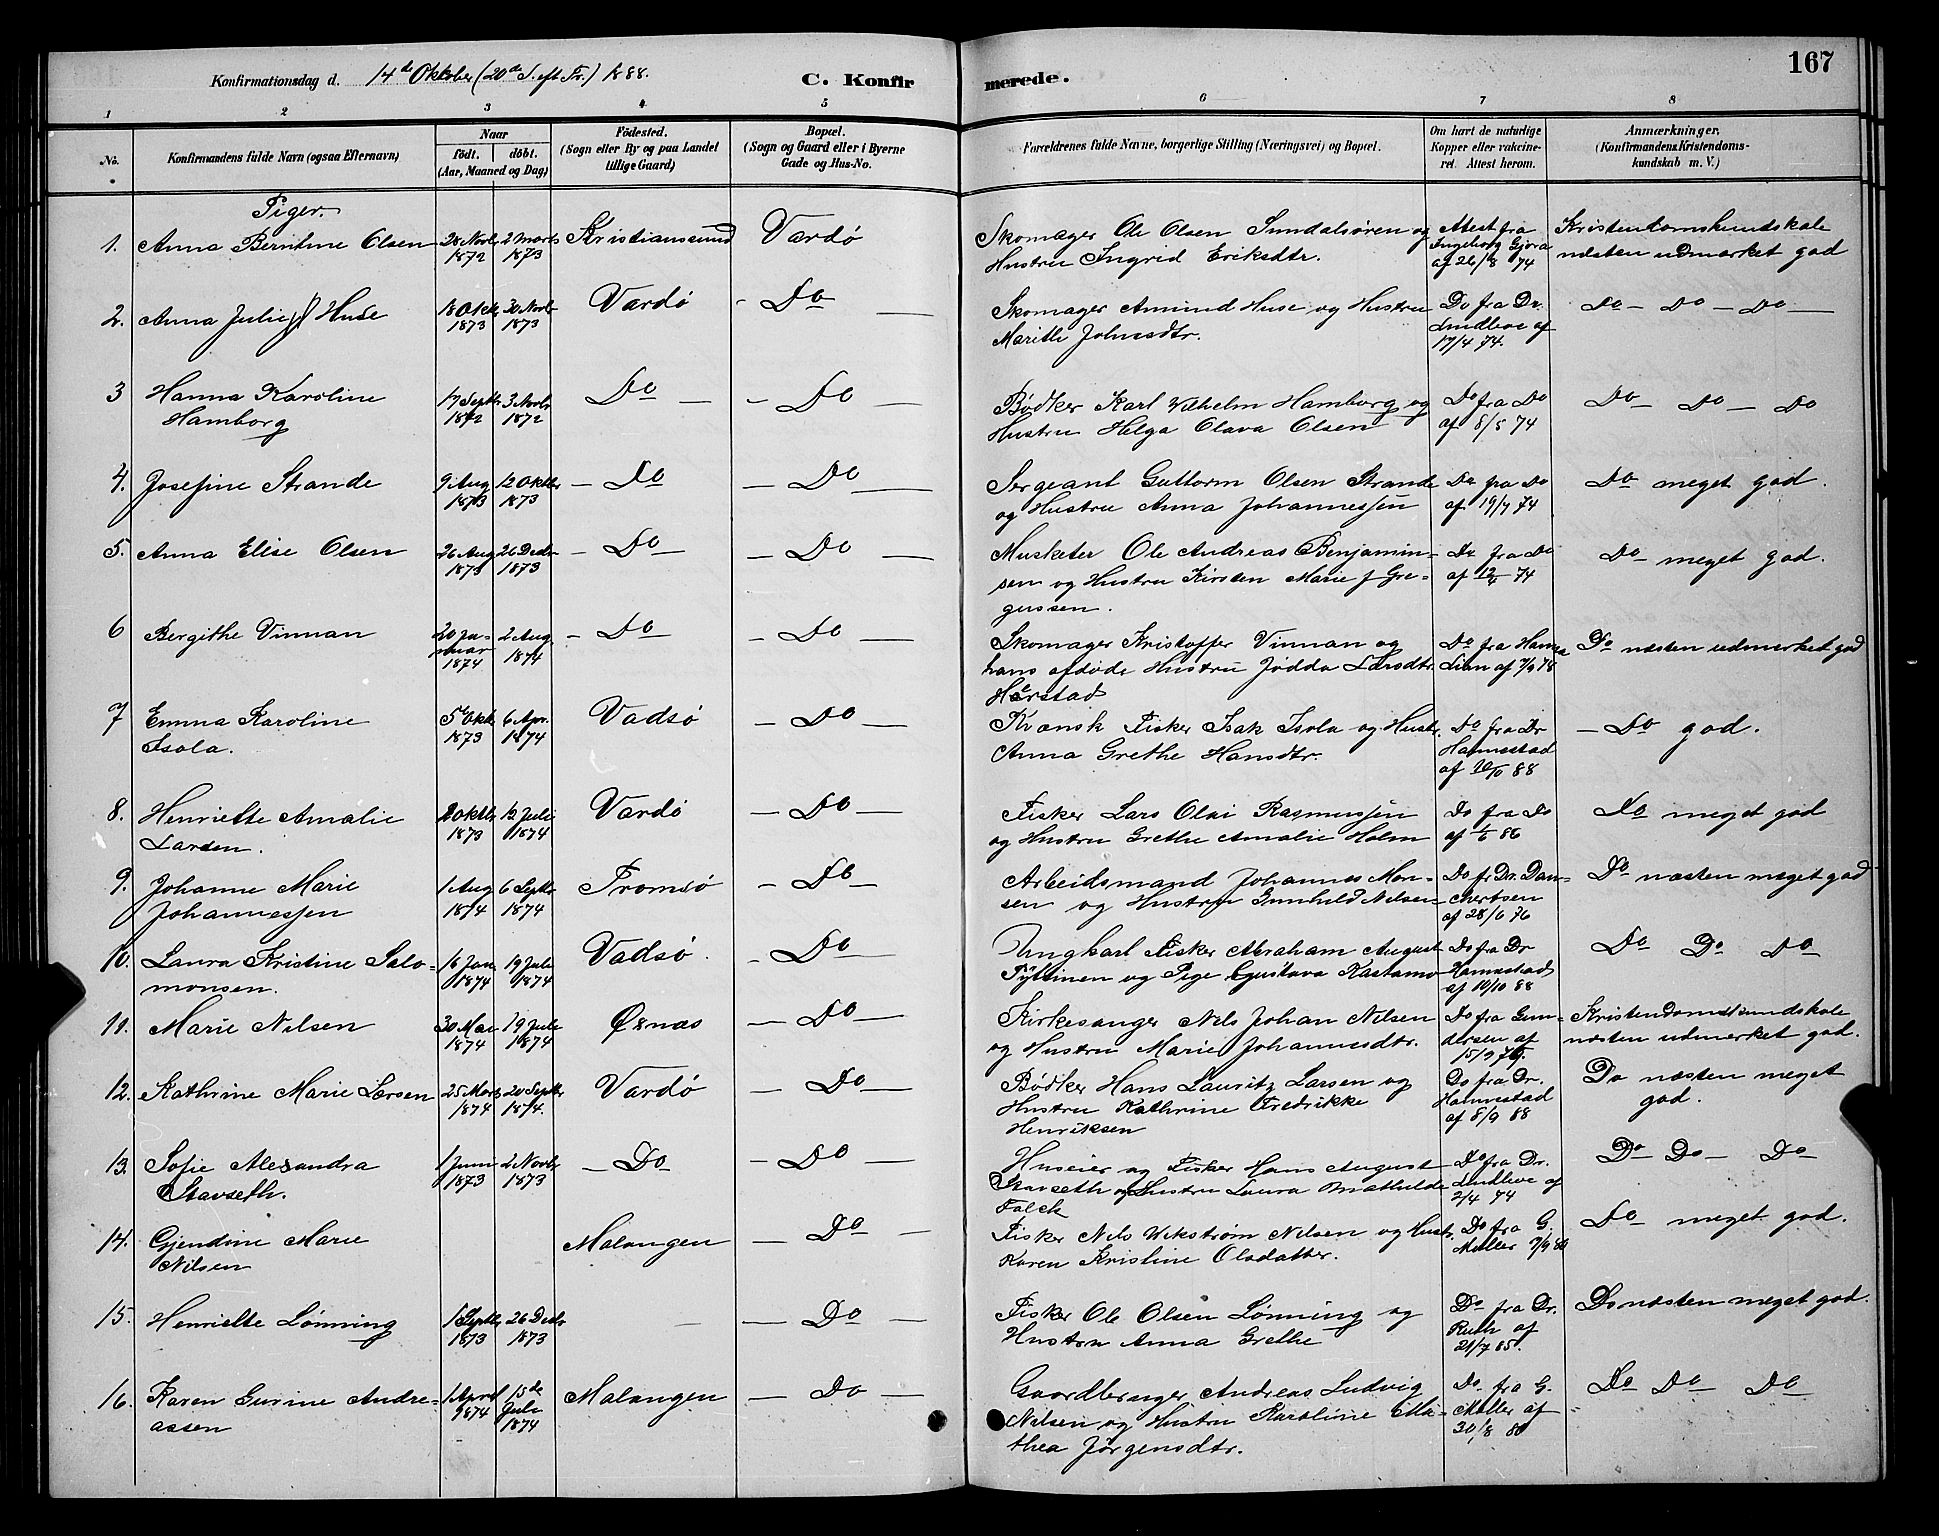 167
Konfirmationsdag d. 14de Oktober (20de S. eft Tr.) 1888. C. Konfirmerede.
1 2 3 4 5 6 7 8
No. Konfirmandens fulde Navn (ogsaa Efternavn) Naar født. døbt. (Aar, Maaned og Dag) Fødested. (Sogn eller By og paa Landet tillige Gaard) Bopæl. (Sogn og Gaard eller i Byerne Gade og Hus-No. Forældrenes fulde Navne, borgerlige Stilling (Næringsvei) og Bopæl. Om havt de naturlige Kopper eller vakcineret. Attest herom. Anmærkninger. (Konfirmandens Kristendomskundskab m. V.)
Piger.
1. Anna Berntine Olsen 28 Novbr 1872 2 Marts 1873 Kristianssund Vardø Skomager Ole Olsen Sundalsøren og Attest fra Kristendomskundskab
Hustru Ingrid Eriksdtr. Ingeborg Gjøra af 26/8 74 næsten udmærket god
2. Anna Julie Huse 18 Oktb 1873 30 Novbr 1873 Vardø - Do - Skomager Amund Huse og Hustru Do fra Dr. Do - Do - Do -
Marith Johnsdtr. Lindboe af 17/4 74.
3 Hanna Karoline 17 Septb 1872 3 Novbr 1872 Do - - Do - Bødker Karl Wilhelm Hamborg og Do fra Do Do - Do - Do
Hamborg Hustru Helga Olava Olsen af 8/5 74
4. Josefine Strande 9 Aug 1873 12 Oktbr 1873 - Do - Do - Sergeant Guttorm Olsen Strande Do fra Do Do meget god.
og Hustru Anna Johannessen af 19/7 74
5. Anna Elise Olsen 26 Aug 1873 26 Decbr 1873 - Do - - Do - Musketer Ole Andreas Benjamin- Do fra Do Do - meget god.
sen og Hustru Kirsten Marie f Gre- af 12/4 74
gussen.
6 Bergithe Vinnan 20 Januar 1874 2 Aug 1874 - Do - Do - Skomager Kristoffer Vinnan og Do fra Hanna Do næsten udmærket god
hans afdøde Hustru Jødda Larsdtr. Lien af 7/9 78
Harstad
7 Emma Karoline 5 Oktb 1873 6 Apr. 1874 Vadsø - Do - Kvænsk Fisker Isak Isola og Hustr. Do fra Dr - Do god.
Isola. Anna Grethe Hansdtr. Hannestad af 10/10 88
8. Henriette Amalie Oktbr 1873 12 Juli 1874 Vardø - Do - Fisker Lars Olai Rasmussen Do fra Do Do meget god
Larsen. og Hustru Grethe Amalie Holm af 1/6 86
9. Johanne Marie 1 Aug 1874 6 Septbr 1874 Tromsø - Do - Arbeidsmand Johannes Mon- Do fr Dr. Dan- Do næsten meget god
Johannessen sen og Hustru Gunhild Nilsen chertsen af 28/6 76
10. Laura Kristine Salo- 16 Jan 1874 19 Juli 1874 Vadsø. - Do - Ungkarl Fisker Abraham August Do fra Dr Do Do Do
monsen. og Pige Gustava Kastamo Hannestad af 10/10 88
11. Marie Nilsen 30 Mai 1874 19 Juli 1874 Øxnæs - Do - Kirkesanger Nils Johan Nilsen Do fra Gun- Kristendomskundskab
og Hustru Marie Johannesdtr. dersen af 15/9 næsten udmerket god.
12. Kathrine Marie Larsen 25 Marts 1874 20 Septbr 1874. Vardø - Do - Bødker Hans Lauritz Larsen og Do fra Dr. Do næsten meget
Hustru Kathrine Fredrikke Hannestad god.
Henriksen af 8/9 88
13. Sofie Alexandra 1 Juni 1873 2 Novbr 1873 - Do - Do - Huseier og Fisker Hans August Do fra Dr. Do Do - Do
Stavseth. Stavseth og Hustru Laura Mathilde Lindboe af
Falck 2/4 74
14. Gjendine Marie Malangen - Do - Fisker Nils Wikstrøm Nilsen og Hustr. Do fra G. Do meget god.
Nilsen Karen Kristine Olsdatter. Møller 7/9 80
15. Henriette Lønning 1 Septbr 1873 26 Decbr 1873 - - Do - Fisker Ole Olsen Lønning og Do fra Dr. Do næsten meget god.
Hustru Anna Grethe Ruth af 21/7 85.
16. Karen Gurine Andre- 1 April 1874 15de Juli 1874 Malangen - Do - Gaardbruger Andreas Ludvig Do fra G. Do Do - Do
assen Nilsen og Hustru Karoline Ma- Møller af
thea Jørgensdtr. 30/8 80